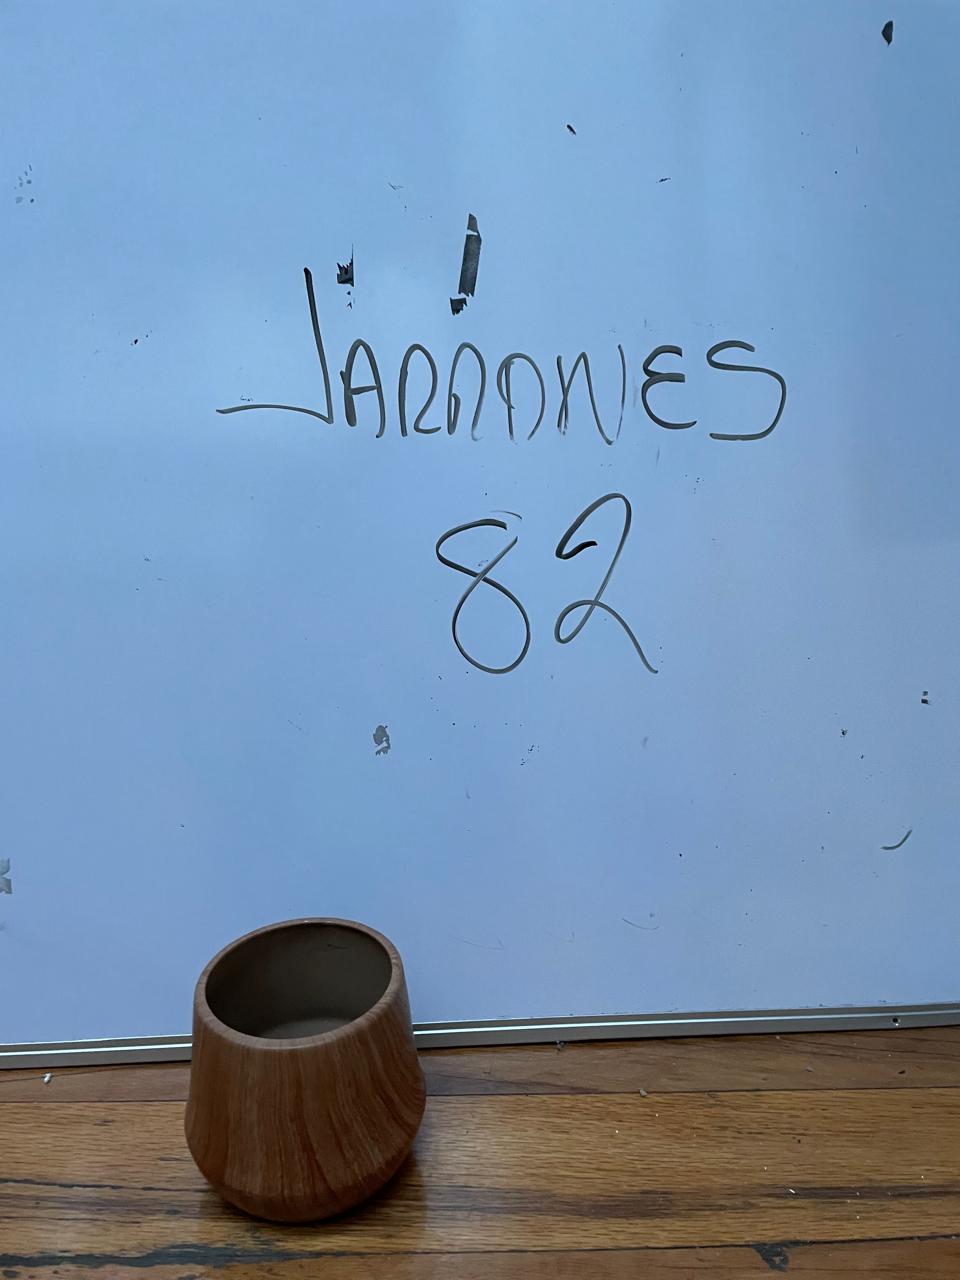 JARRONES
82